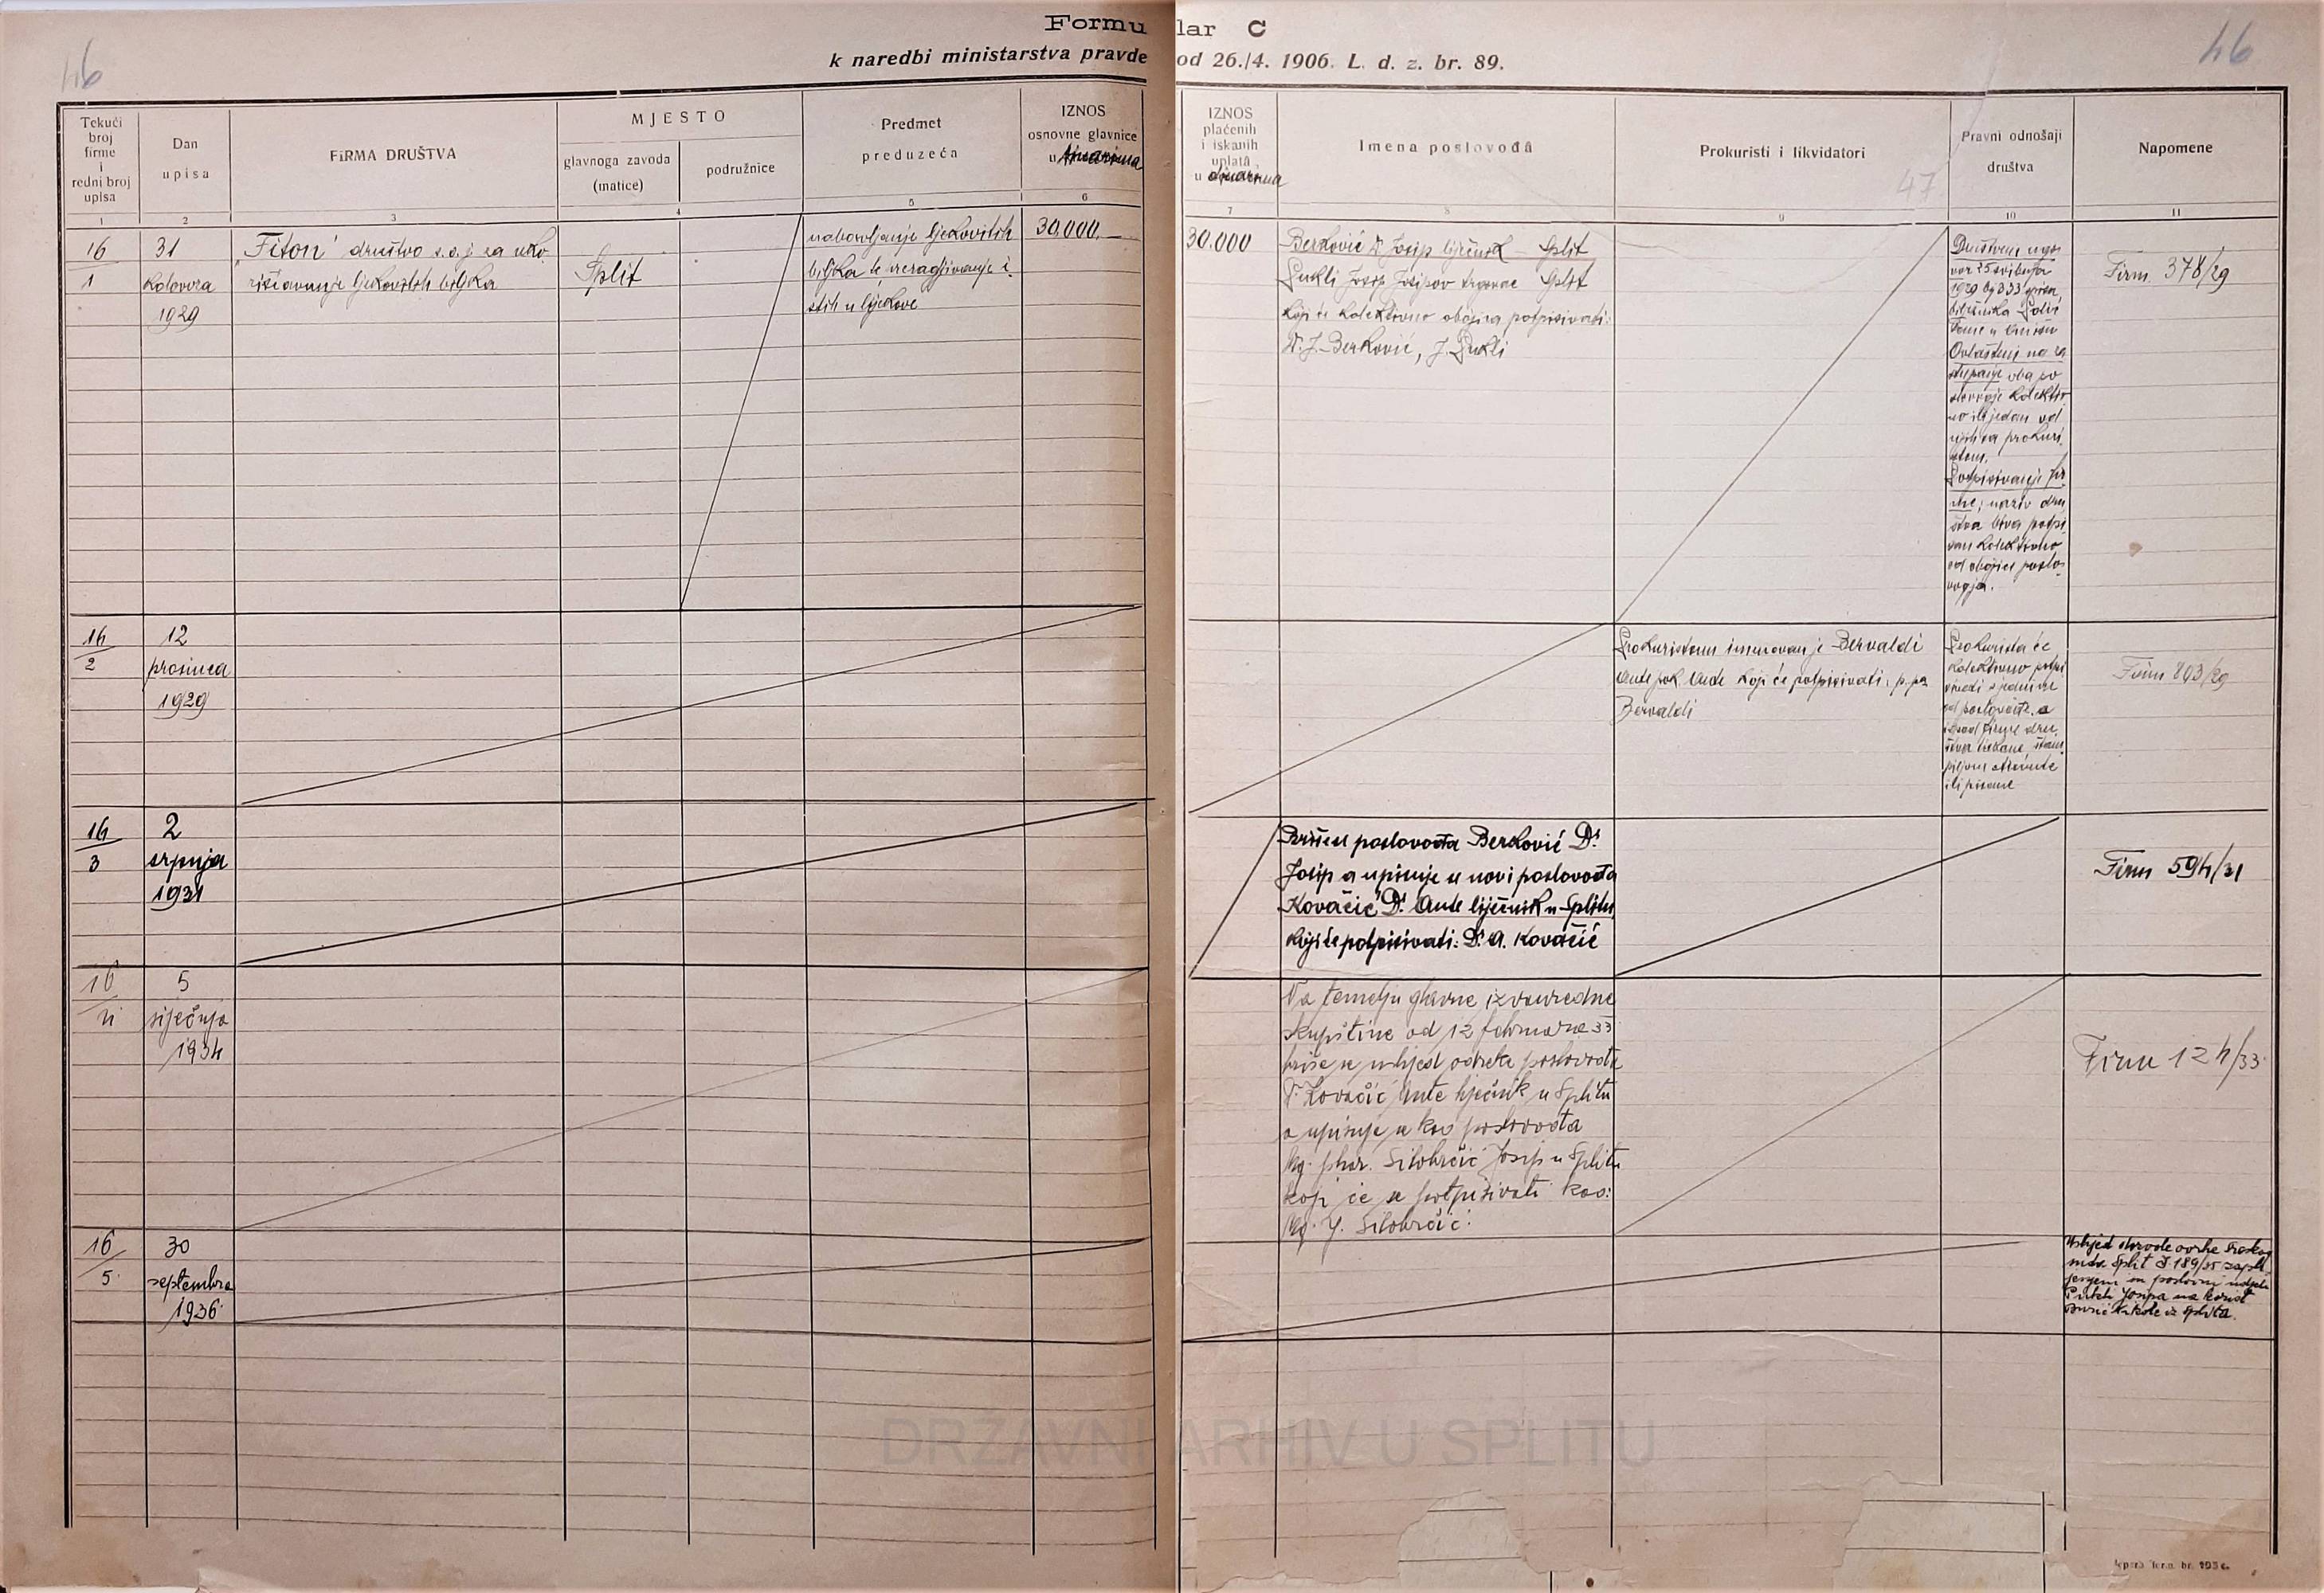 Formular C
k naredbi ministarstva pravde od 26./4. 1906. L. d. z. br. 89.
46
46
Tekući
broj
firme
i
redni broj
upisa
Dan
upisa
FiRMA DRUŠTVA
MJESTO
glavnoga zavoda
(matice)
podružnice
Predmet
preduzeća
IZNOS
osnovne glavnice
u dinarima
IZNOS
plaćenih
i iskanih
uplata
u dinarima
Imena poslovođa
Prokuristi i likvidatori
47
Pravni odnošaji
društva
Napomene
1 2 3 4 5 6 7 8 9 10 11
16
1
31
kolovoza
1929
"Fiton" društvo s.o.j za isko
rišćavanje ljekovitih biljka
Split
nabavljanje ljekovitih
biljka te preragjivanje i
stih u lijekove
30.000.—
30.000
Berković Dr Josip liječnik — Split
Josip Josipov trgovac Split
koji će kolektivno obojica potpisivati:
Dr. J. Berković, J.
Društveni ugo
vor 25 svibnja
1929
bilježnika
Ovlašteni na za
stupanje oba po
slovogje kolektiv
no ili jedan od
njih sa prokuri
stom.
Potpisivanje fir
me; naziv dru
štva biva potpi
san kolektivno
od obojice poslo
vogja.
Firm. 378/29
16
2
12
prosinca
1929
Prokuristom imenovan je Bervaldi
Ante pok. Ante koji će potpisivati: p.pa
Bervaldi
Prokurista će
kolektivno potpi
sivati s jednim
od poslovođe a
iznad firme dru
štva tiskane, štam
piljom otisnute
ili pisane
Firm 893/29
16
3
2
srpnja
1931
Briše se poslovođa Berković Dr
Josip a upisuje se novi poslovođa
Kovačić Dr. Ante liječnik u Splitu
koji će potpisivati: Dr. A. Kovačić
Firm 594/31
16
4
5
siječnja
1934
Na temelju glavne izvanredne
skupštine od 12 februara 33
briše se uslijed odreke poslovođa
Dr. Kovačić Ante liječnik u Splitu
a upisuje se kao poslovođa
Mg. phar. Silobrčić Josip u Splitu
koji će se potpisivati kao:
Mg. J. Silobrčić.
Firm 124/33
16
5
30
septembra
1936
Uslijed dozvole ovrhe Sreskog
suda Split 189/35
poslovni udjeli
Josipa na korist
Nikole iz Splita.
DRŽAVNI ARHIV U SPLITU